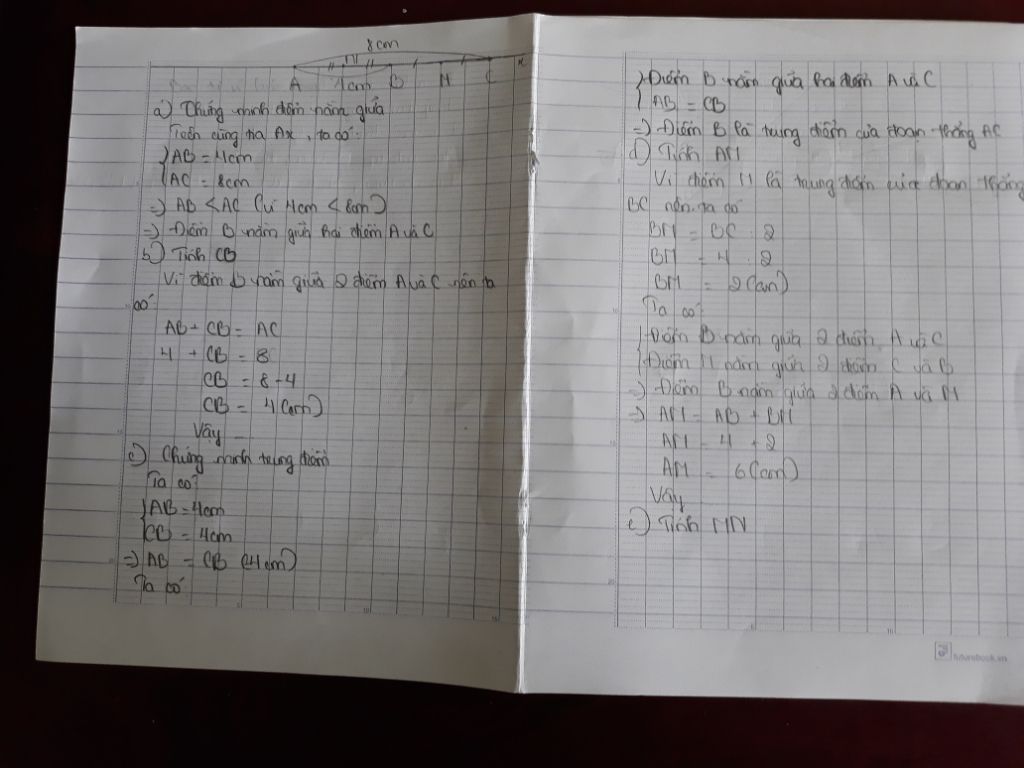 8cm
A 4cm B M C x
a) Chứng minh điểm nằm giữa
Trên cùng tia Ax, ta có:
AB = 4cm
AC = 8cm
=> AB < AC (Vì 4cm < 8cm)
=> Điểm B nằm giữa hai điểm A và C
b) Tính CB
Vì điểm B nằm giữa 2 điểm A và C nên ta
có:
AB + CB = AC
4 + CB = 8
CB = 8 - 4
CB = 4 (cm)
Vậy
c) Chứng minh trung điểm
Ta có:
AB = 4cm
CB = 4cm
=> AB = CB (4cm)
Ta có
Điểm B nằm giữa hai điểm A và C
AB = CB
=> Điểm B là trung điểm của đoạn thẳng AC
d) Tính AM
Vì điểm M là trung điểm của đoạn thẳng
BC nên ta có
BM = BC : 2
BM = 4 : 2
BM = 2 (cm)
Ta có:
Điểm B nằm giữa 2 điểm A và C
Điểm M nằm giữa 2 điểm C và B
=> Điểm B nằm giữa 2 điểm A và M
=> AM = AB + BM
AM = 4 + 2
AM = 6 (cm)
Vậy
e) Tính MN
futurebook.vn